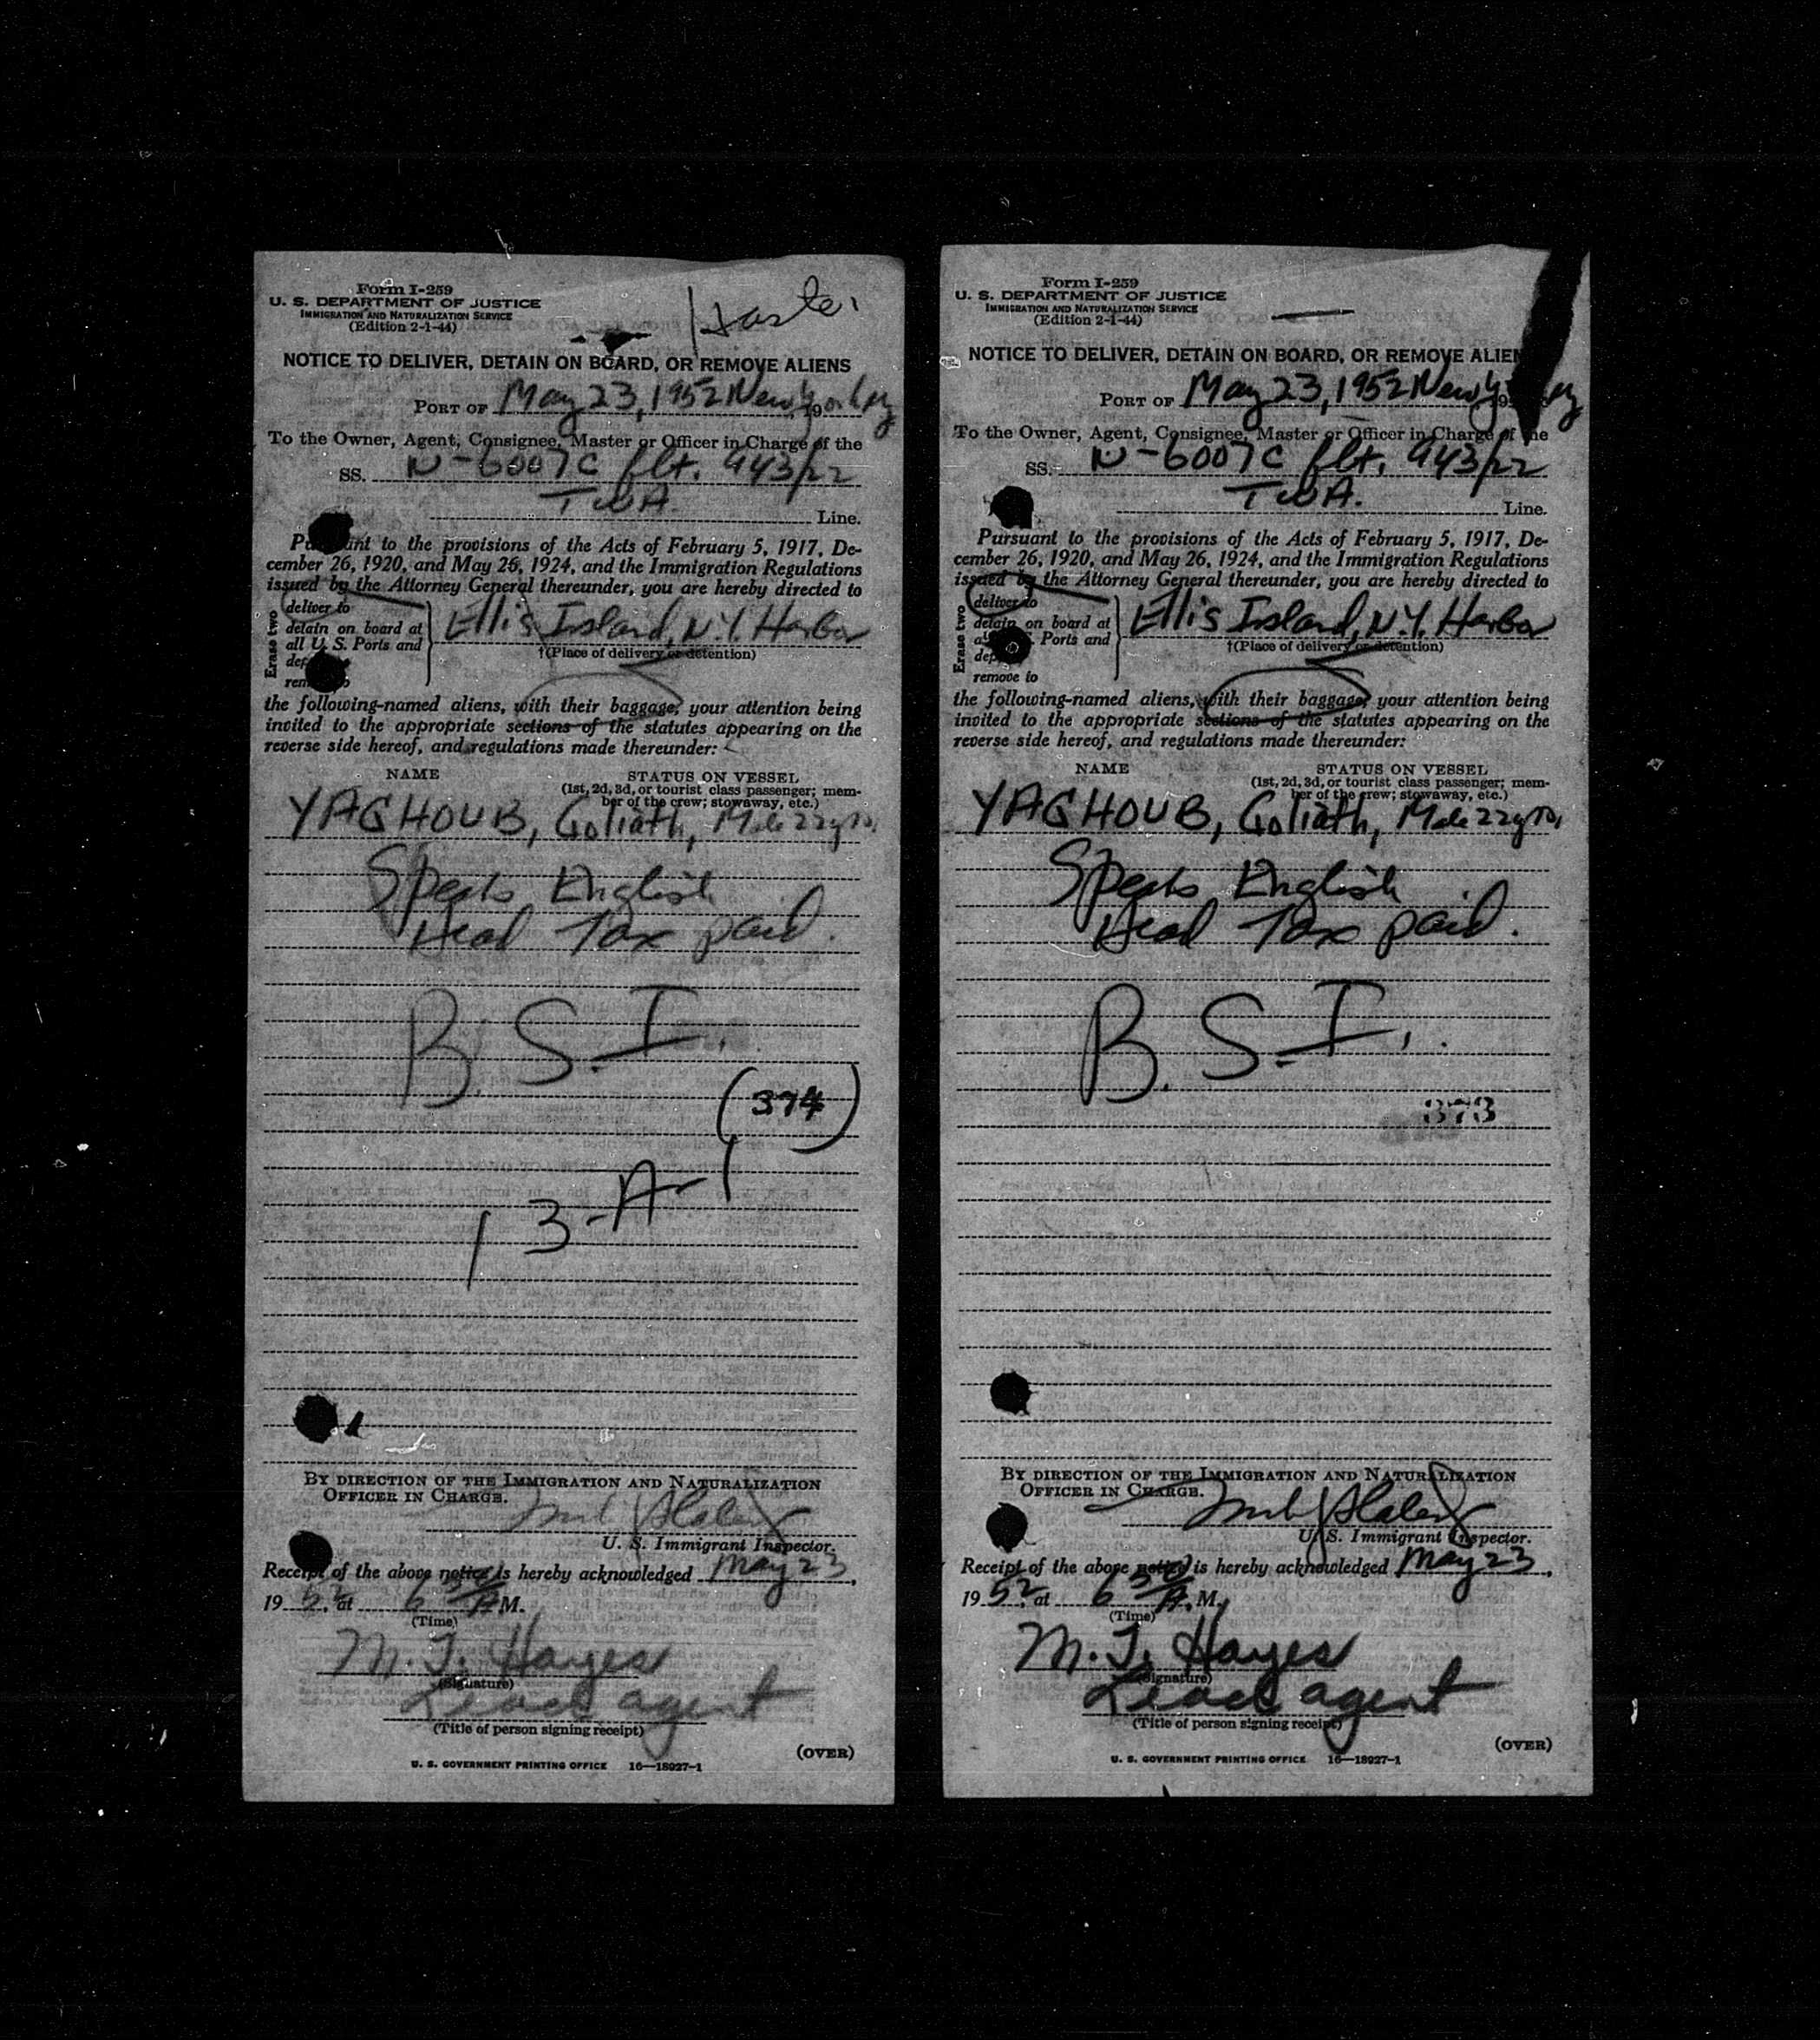 Form I-259
U. S. DEPARTMENT OF JUSTICE
IMMIGRATION AND NATURALIZATION SERVICE
(Edition 2-1-44)
NOTICE TO DELIVER, DETAIN ON BOARD, OR REMOVE ALIENS
PORT OF May 23, 1952 New York NY 19
To the Owner, Agent, Consignee, Master or Officer in Charge of the
SS. N-6007C flt. 943/22
TWA. Line.
Pursuant to the provisions of the Acts of February 5, 1917, De-
cember 26, 1920, and May 26, 1924, and the Immigration Regulations
issued by the Attorney General thereunder, you are hereby directed to
Erase two
deliver to
detain on board at
all U. S. Ports and
remove to
Ellis Island, N.Y. Harbor
†(Place of delivery or detention)
the following-named aliens, with their baggage, your attention being
invited to the appropriate sections of the statutes appearing on the
reverse side hereof, and regulations made thereunder:
NAME STATUS ON VESSEL
(1st, 2d, 3d, or tourist class passenger; mem-
ber of the crew; stowaway, etc.)
YAGHOUB, Goliath, Male 22 yrs.
Speaks English
Head Tax paid.
B. S. I.
(374)
13-A-1
BY DIRECTION OF THE IMMIGRATION AND NATURALIZATION
OFFICER IN CHARGE.
U. S. Immigrant Inspector.
Receipt of the above notice is hereby acknowledged May 23,
19 52, at 6 30 A. M.
(Time)
M. J. Hayes
(Signature)
Lead agent
(Title of person signing receipt)
(OVER)
U. S. GOVERNMENT PRINTING OFFICE 16—18927-1
Form I-259
U. S. DEPARTMENT OF JUSTICE
IMMIGRATION AND NATURALIZATION SERVICE
(Edition 2-1-44)
NOTICE TO DELIVER, DETAIN ON BOARD, OR REMOVE ALIEN
PORT OF May 23, 1952 New Y 19 NY
To the Owner, Agent, Consignee, Master or Officer in Charge of the
SS. N-6007C flt. 943/22
TWA. Line.
Pursuant to the provisions of the Acts of February 5, 1917, De-
cember 26, 1920, and May 26, 1924, and the Immigration Regulations
issued by the Attorney General thereunder, you are hereby directed to
Erase two
deliver to
detain on board at
Ports and
remove to
Ellis Island, N.Y. Harbor
†(Place of delivery or detention)
the following-named aliens, with their baggage, your attention being
invited to the appropriate sections of the statutes appearing on the
reverse side hereof, and regulations made thereunder:
NAME STATUS ON VESSEL
(1st, 2d, 3d, or tourist class passenger; mem-
ber of the crew; stowaway, etc.)
YAGHOUB, Goliath, Male 22 yrs.
Speaks English
Head Tax paid.
B. S. I.
373
BY DIRECTION OF THE IMMIGRATION AND NATURALIZATION
OFFICER IN CHARGE.
U. S. Immigrant Inspector.
Receipt of the above notice is hereby acknowledged May 23,
19 52, at 6 30 A. M.
(Time)
M. J. Hayes
(Signature)
Lead agent
(Title of person signing receipt)
(OVER)
U. S. GOVERNMENT PRINTING OFFICE 16—18927-1